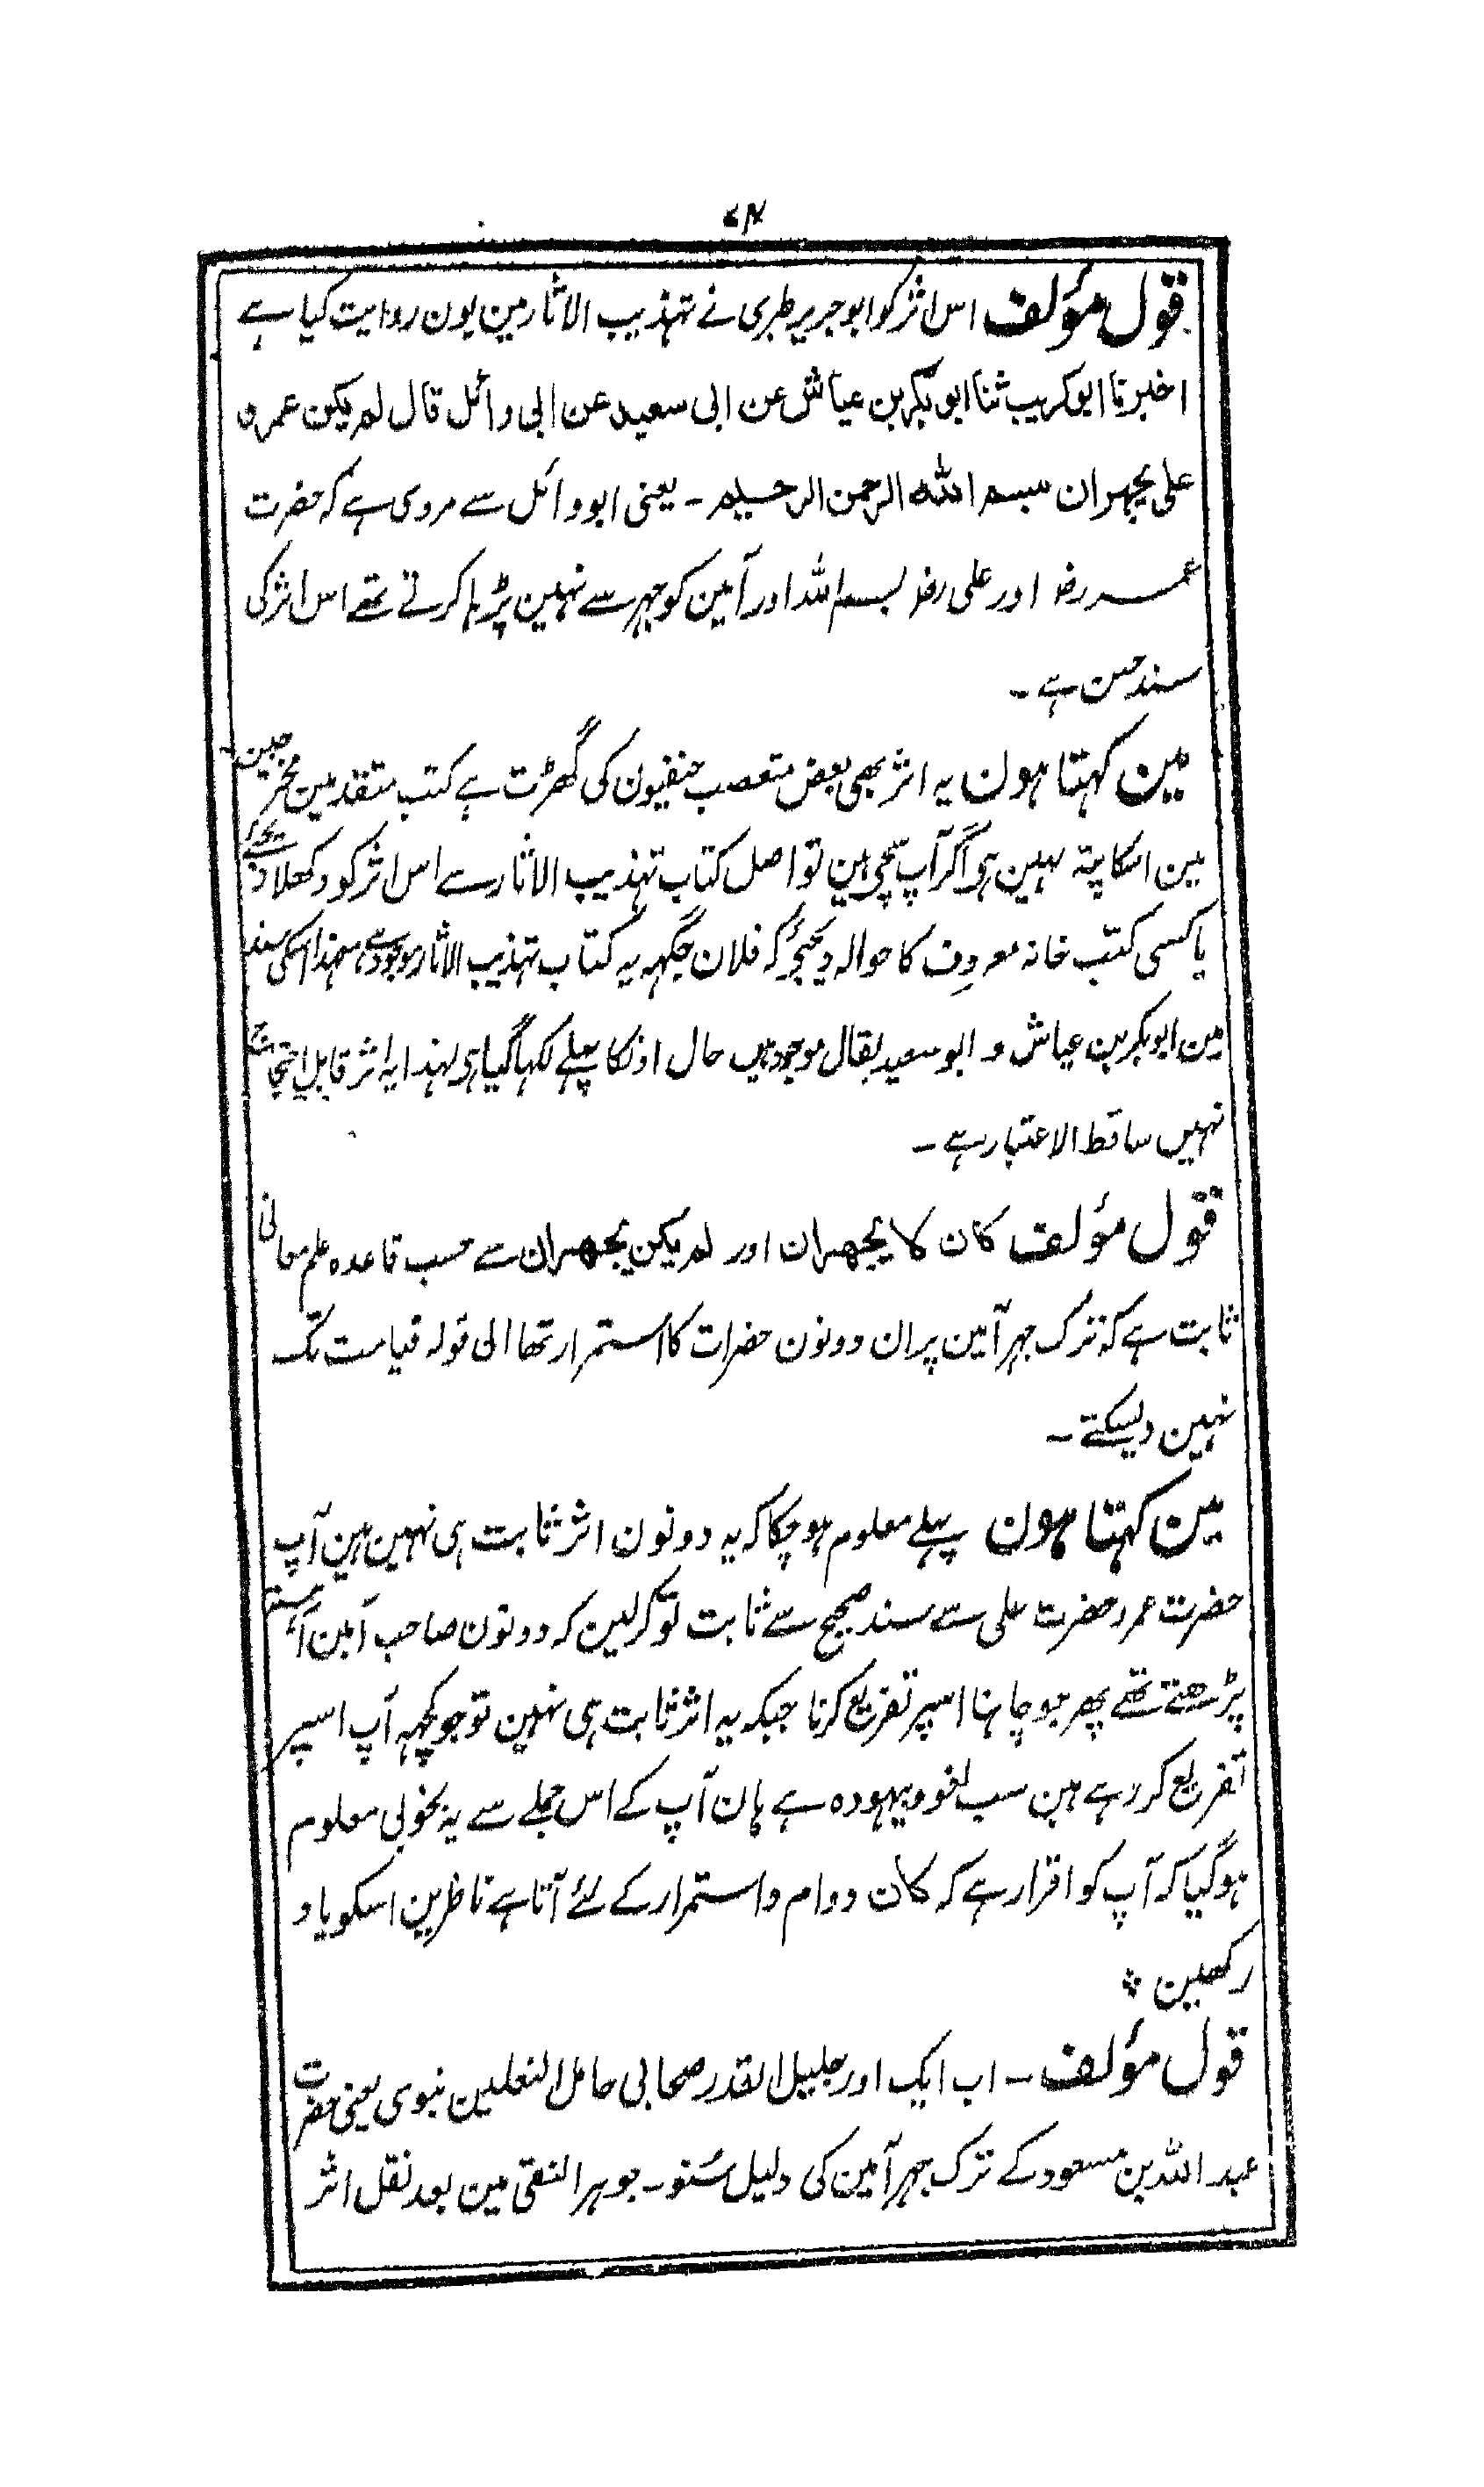 ۷۴
قول مؤلف اس اثر کو ابو جریر طبری نے تہذیب الاثار مین یون روایت کیا ہے
اخبرنا ابو کریب ثنا ابو بکر بن عیاش عن ابی سعید عن ابی وائل قال لم یکن عمر و
علی یجہران ببسم اللہ الرحمن الرحیم ۔ یعنی ابو وائل سے مروی ہے کہ حضرت
عمر رض اور علی رض بسم اللہ اور آمین کو جہر سے نہین پڑہا کرتے تھے اس اثر کی
سند حسن ہے ۔
مین کہتا ہون یہ اثر بھی بعض متعصب حنفیون کی گھڑت ہے کتب متقدمین مخرجین
مین اسکا پتہ نہین ہی اگر آپ سچی ہین تو اصل کتاب تہذیب الاثار سے اس اثر کو دکھلا دیجئے
یا کسی کتب خانہ معروف کا حوالہ دیجئے کہ فلان جگہہ یہ کتاب تہذیب الاثار موجود ہے معہذا اسکی سند
مین ابو بکر بن عیاش و ابو سعید بقال موجود ہیں حال اونکا پہلے لکہا گیا ہی لہذا یہ اثر قابل احتجاج
نہیں ساقط الاعتبار ہے ۔
قول مؤلف کان لا یجھران اور لم یکن یجھران سے حسب قاعدہ علم معانی
ثابت ہے کہ ترک جہر آمین پر ان دونون حضرات کا استمرار تھا الی قولہ قیامت تک
نہین دیسکتے ۔
مین کہتا ہون پہلے معلوم ہو چکا کہ یہ دونون اثر ثابت ہی نہین ہین آپ
حضرت عمر و حضرت علی سے سند صحیح سے ثابت تو کر لین کہ دونون صاحب آمین آہستہ
پڑھتے تھے پھر جو چاہنا اسپر تفریع کرنا جبکہ یہ اثر ثابت ہی نہین تو جو کچہہ آپ اسپر
تفریع کر رہے ہین سب لغو و بیہودہ ہے ہان آپ کے اس جملے سے یہ بخوبی معلوم
ہو گیا کہ آپ کو اقرار ہے کہ کان دوام و استمرار کے لئے آتا ہے ناظرین اسکو یاد
رکھین ؞
قول مؤلف ۔ اب ایک اور جلیل القدر صحابی حامل النعلین نبوی یعنی حضرت
عبد اللہ بن مسعود کے ترک جہر آمین کی دلیل سنو ۔ جوہر النقی مین بعد نقل اثر